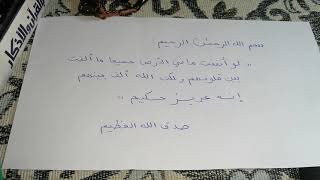 بسم الله الرحمن الرحيم
,, لو أنفقت ما في الأرض جميعا ما ألفت
بين قلوبهم ولكن الله ألف بينهم
إنه عزيز حكيم ,,
صدق الله العظيم